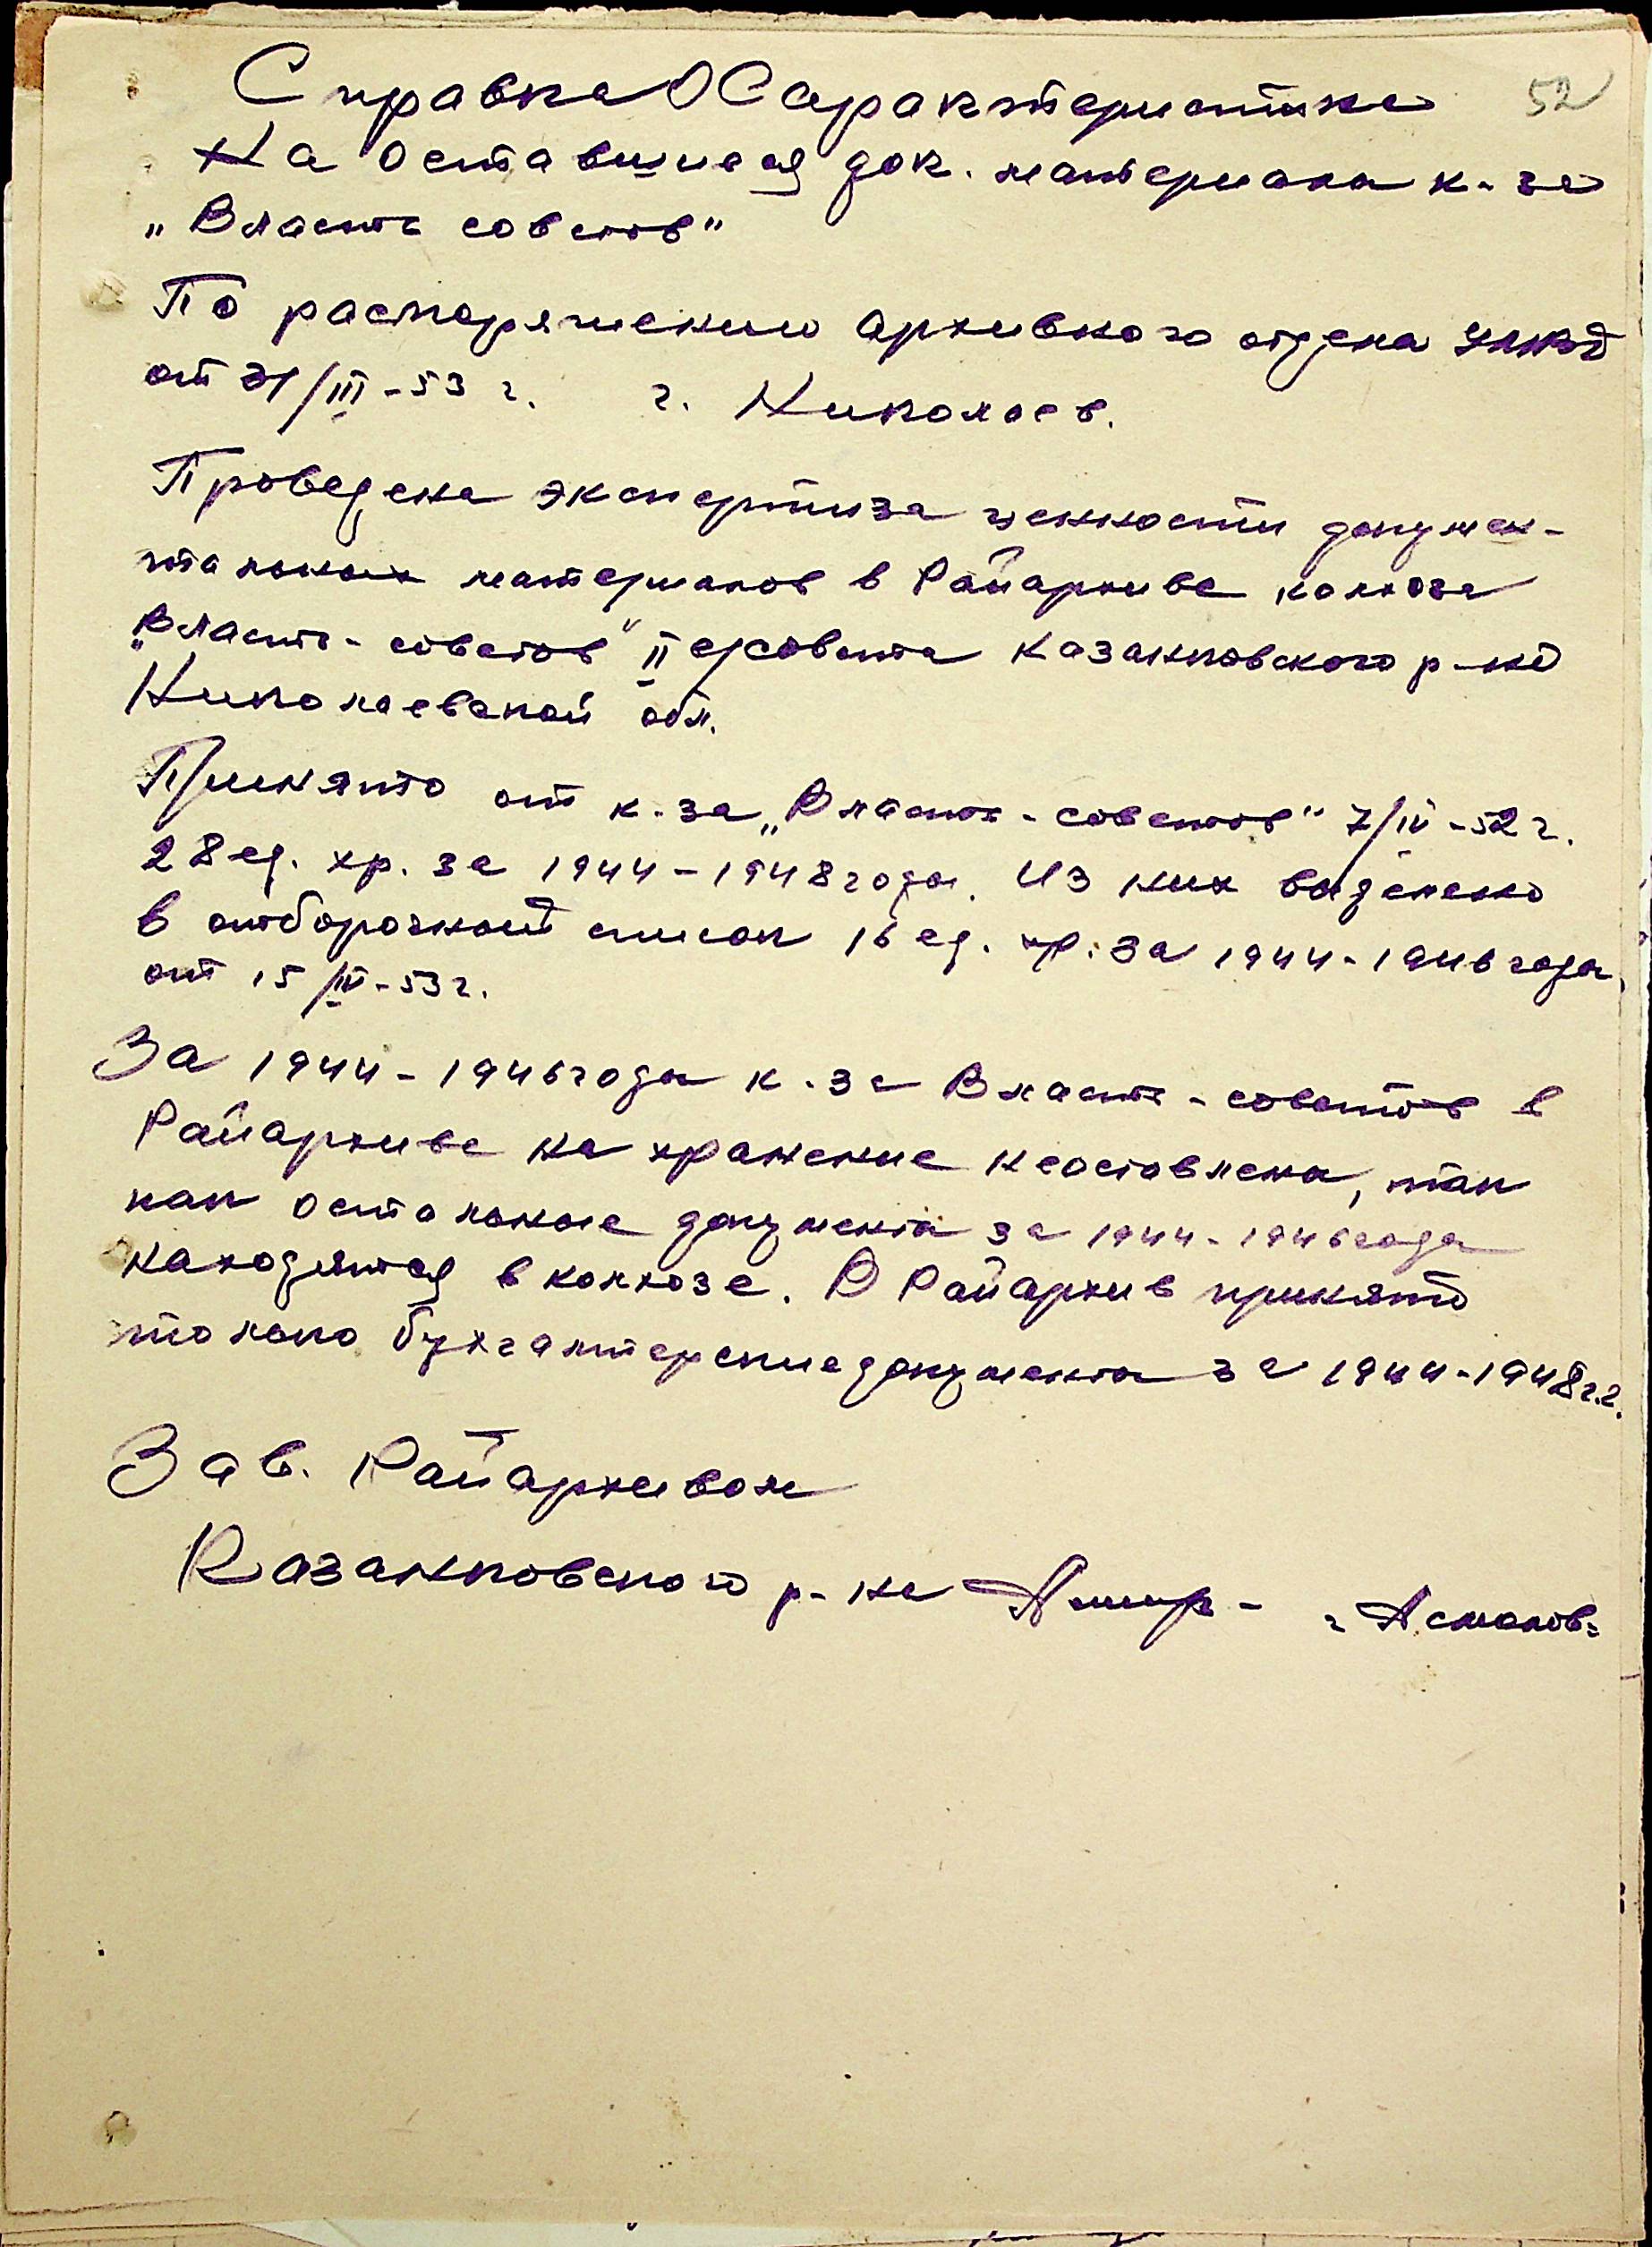 52
Справка Характеристика
На оставшиеся док. материала к-за
„Власть советов"
По распоряжению архивного отдела УМВД
от 31/III-53 г. г. Николаев.
Проведена экспертиза ценности докумен-
тальных материалов в Райархиве колхоза
„Власть-советов" II с/совета Казанковского р-на
Николаевской обл.
Принято от к-за „Власть-советов" 7/IV-52 г.
28 ед. хр. за 1944-1948 года. Из них выделено
в отборочной список 16 ед. хр. за 1944-1946 года,
от 15/IV-53 г.
За 1944-1946 года к-за Власть-советов в
Райархиве на хранение неоставлена, так
как остальные документа за 1944-1946 года
находятся в колхозе. В Райархив принято
только бухгалтерские документа за 1944-1948 г.г.
Зав. Райархивом
Казанковского р-на